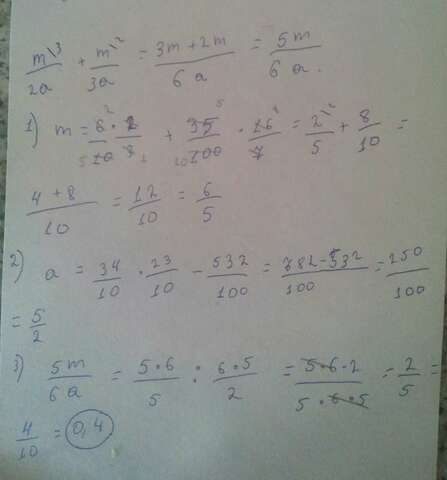 m\3/2a + m\2/3a = 3m+2m/6a = 5m/6a.
1) m = 8/10 · 2/8 + 35/100 · 16/7 = 2\2/5 + 8/10 =
4+8/10 = 12/10 = 6/5
2) a = 34/10 · 23/10 - 532/100 = 782-532/100 = 250/100
= 5/2
3) 5m/6a = 5·6/5 : 6·5/2 = 5·6·2/5·6·5 = 2/5 =
4/10 = 0,4